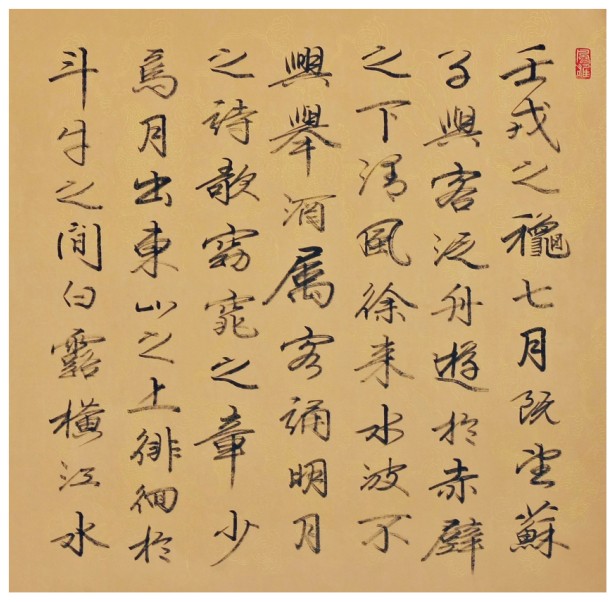 壬戌之龝七月既望蘇
子與客泛舟遊於赤壁
之下清風徐来水波不
興舉酒属客誦明月
之詩歌窈窕之章少
焉月出東山之上徘徊於
斗牛之間白露橫江水